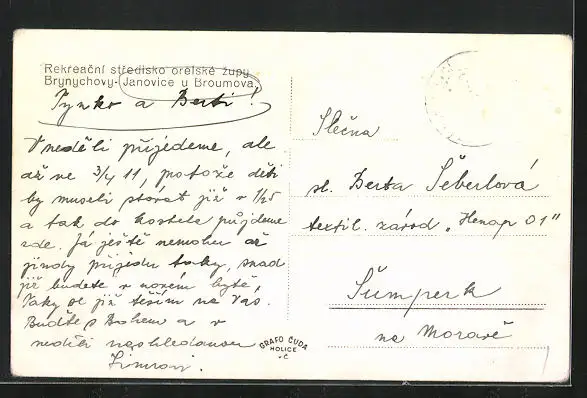 Rekreační středisko orelské župy
Brynychovy-Janovice u Broumova
Tynko a Berti!
V neděli přijedeme, ale
až ve 3/4 11, protože děti
by museli stávat již v 1/25
a tak do kostela půjdeme
zde. Já ještě nemohu až
jindy přijedu taky, snad
již budete v novém bytě,
Taky se již těším na Vás.
Buďte s Bohem a v
neděli nashledanou
Slečna
sl. Berta Šeberlová
textil. závod „Henap 01"
Šumperk
na Moravě
GRAFO ČUDA
HOLICE
v Č